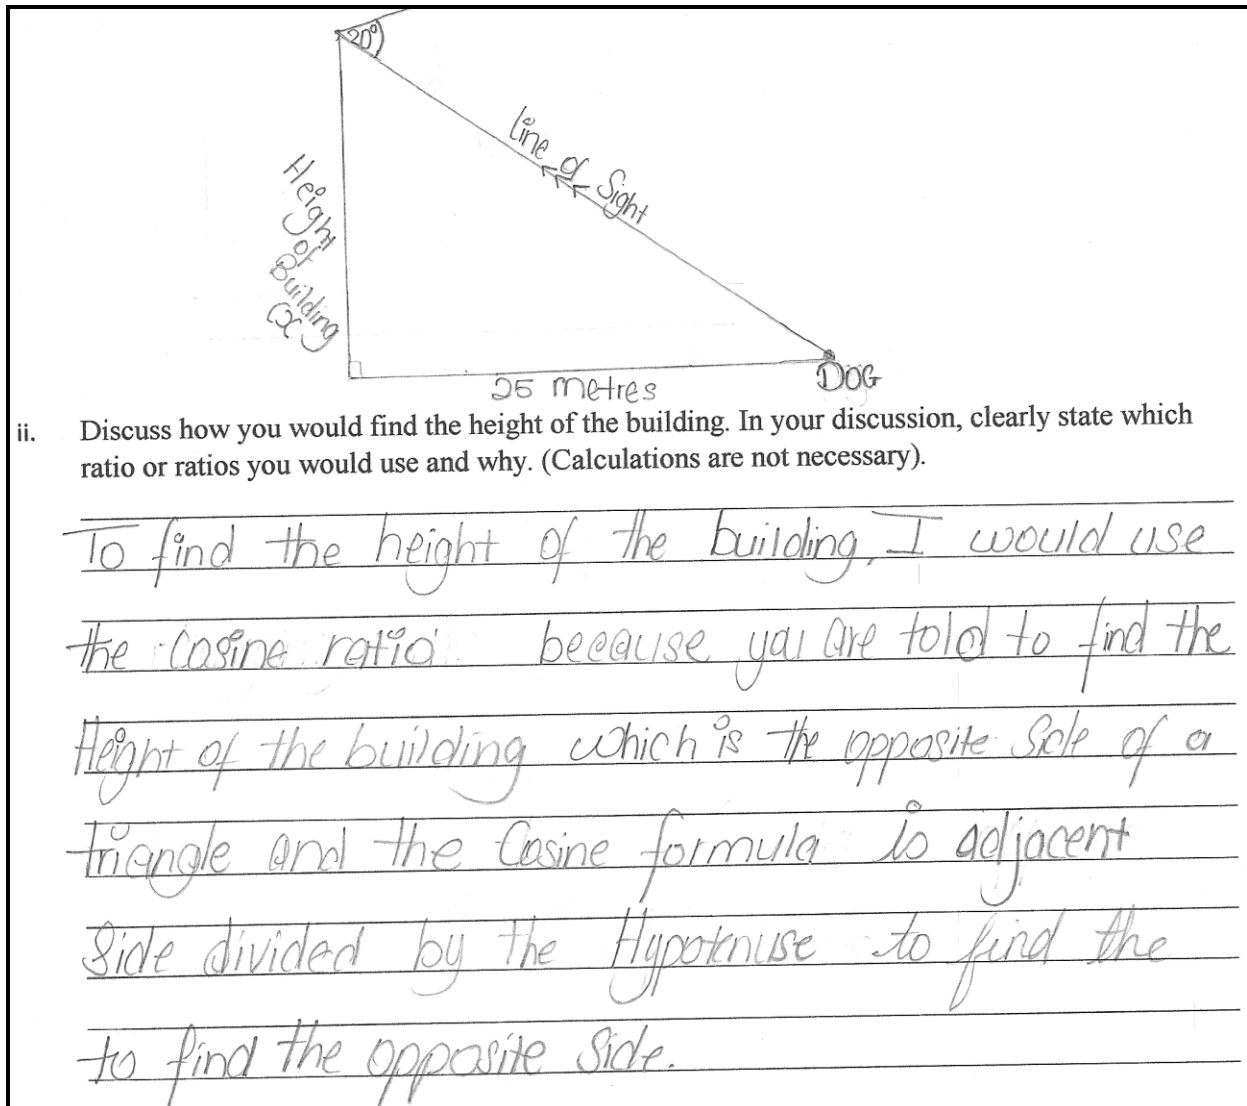 20°
line of Sight
Height
of
Building
x
25 metres
DOG
ii. Discuss how you would find the height of the building. In your discussion, clearly state which
ratio or ratios you would use and why. (Calculations are not necessary).
To find the height of the building, I would use
the cosine ratio because you are told to find the
Height of the building which is the opposite Side of a
triangle and the Cosine formula is adjacent
Side divided by the Hypotenuse to find the
to find the opposite Side.